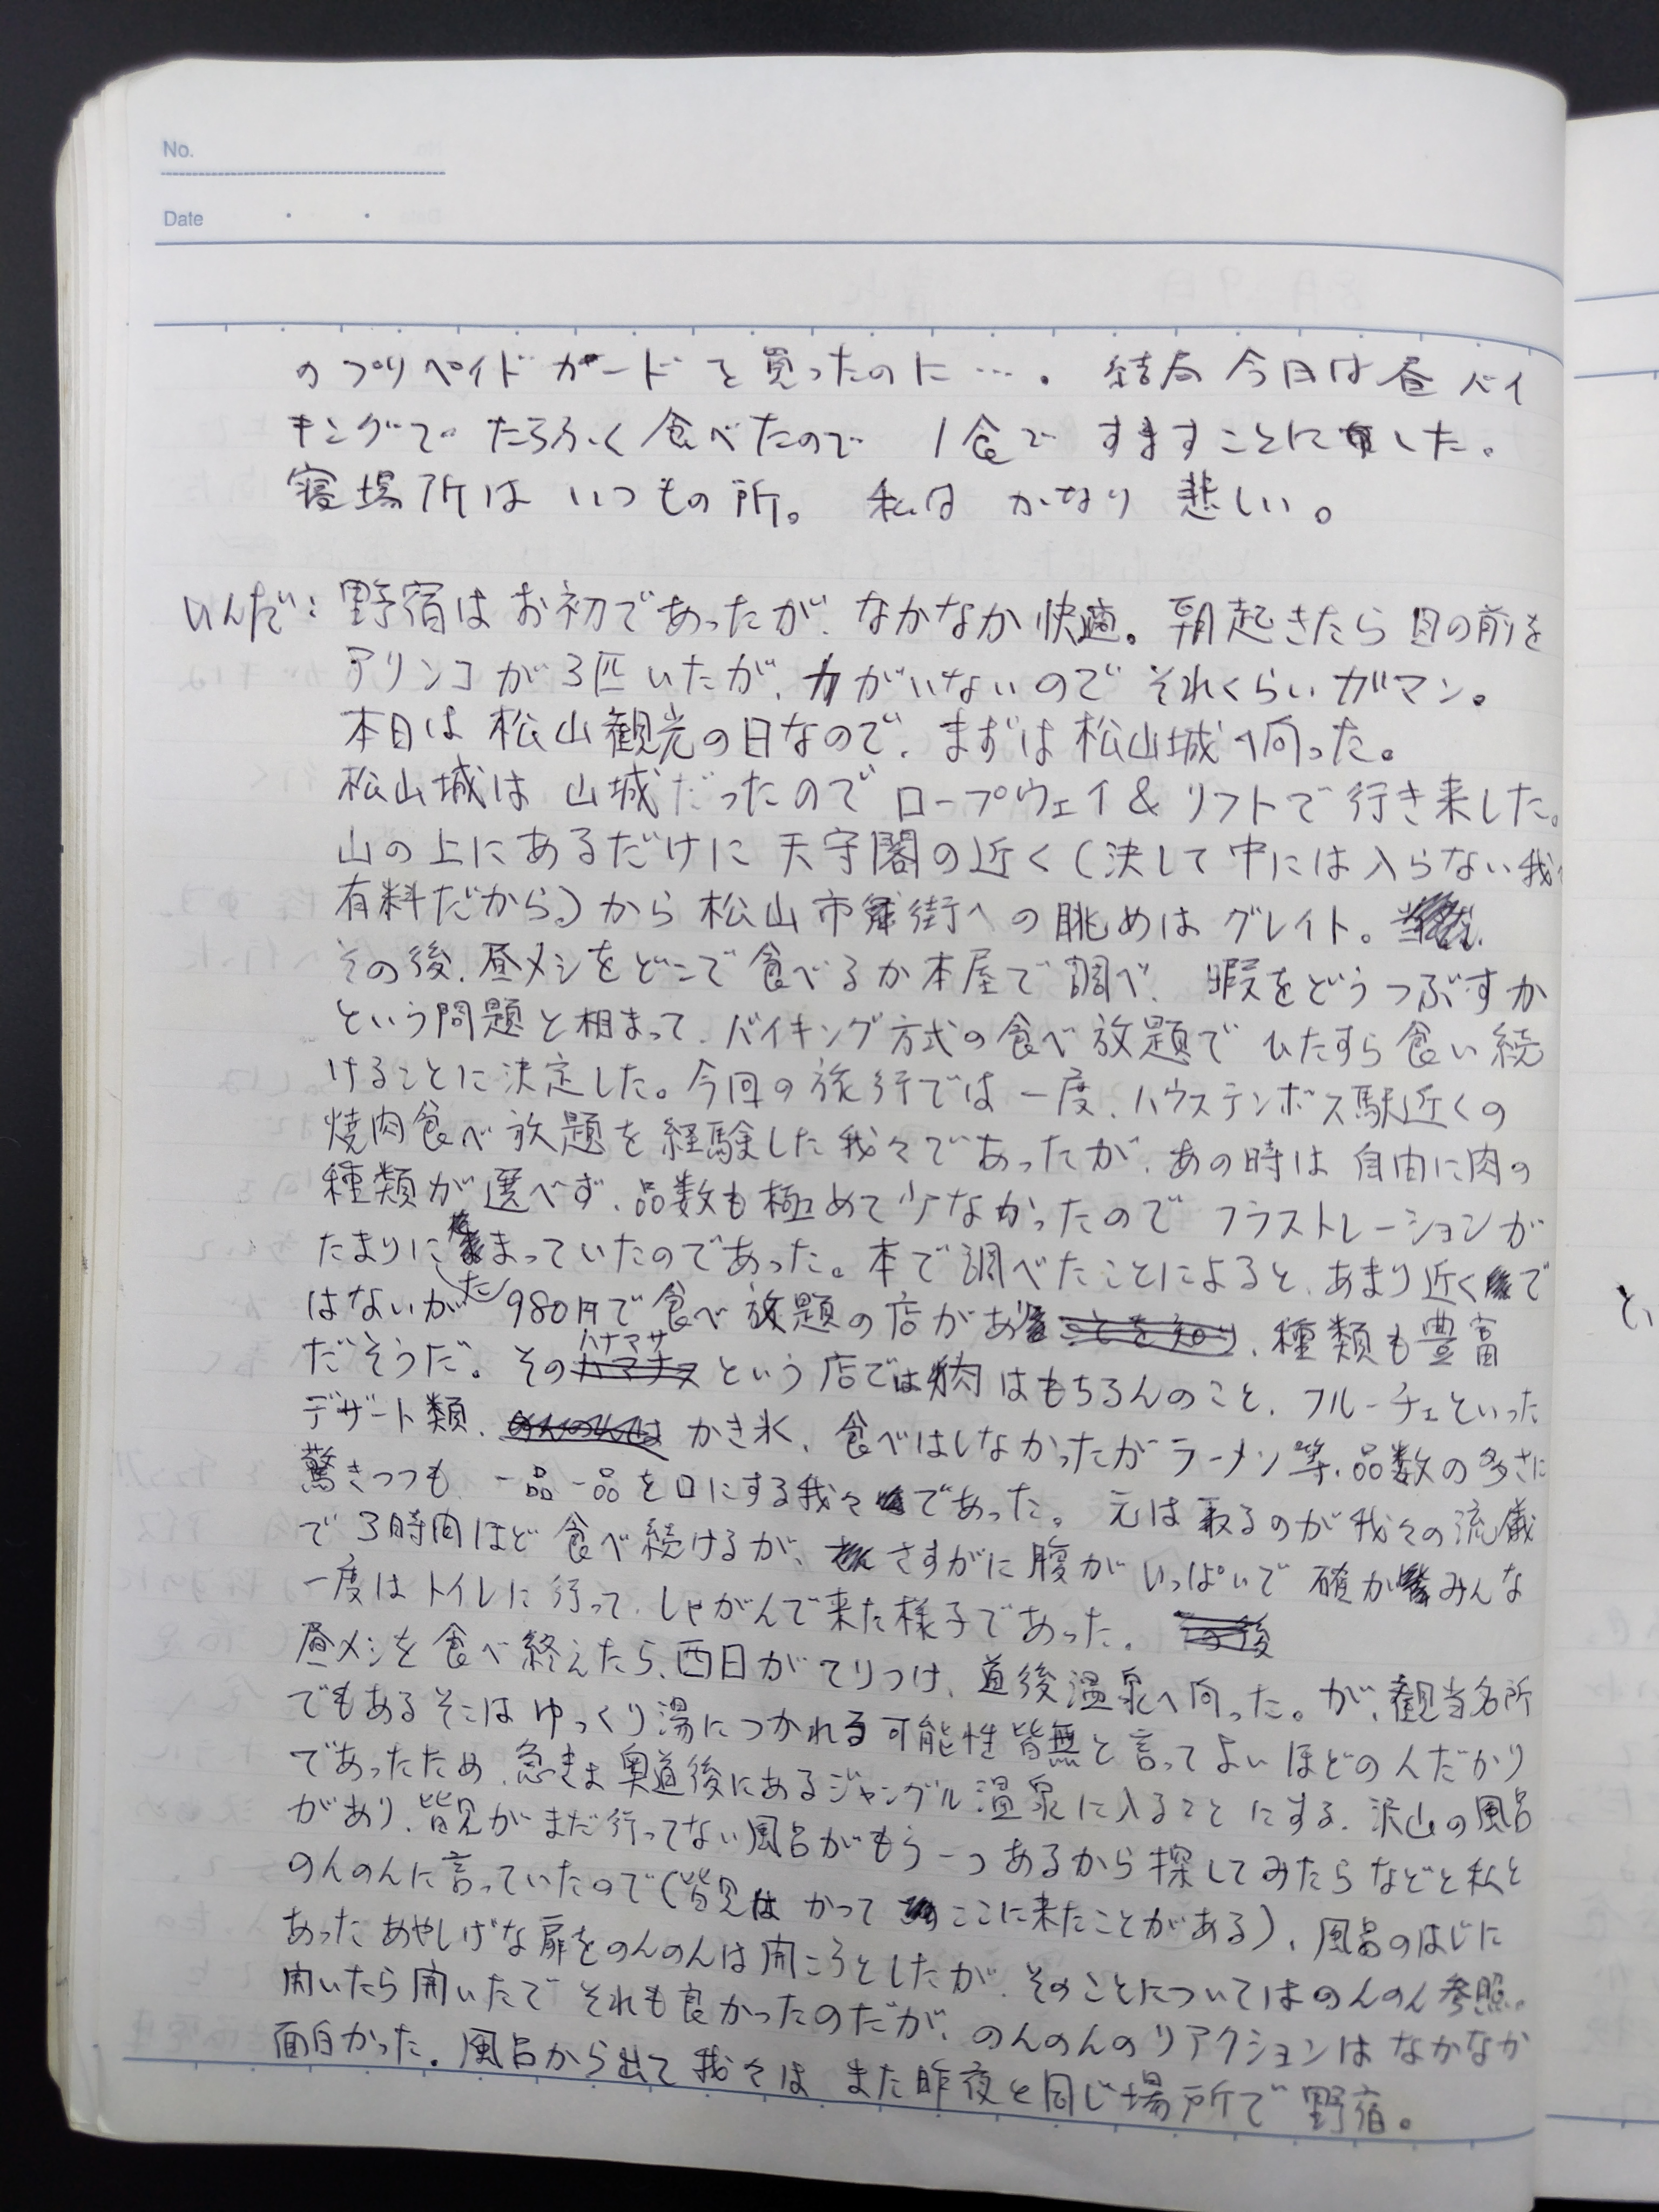 No.
Date
のプリペイドカードを買ったのに…。 結局今日は昼バイ
キングで たらふく食べたので 1食で すますことにした。
寝場所は いつもの所。 私は かなり 悲しい。
いんだ: 野宿はお初であったが、なかなか快適。朝起きたら目の前を
アリンコが3匹いたが、カがいないので それくらいガマン。
本日は松山観光の日なので、まずは松山城へ向った。
松山城は 山城だったので ロープウェイ&リフトで行き来した。
山の上にあるだけに 天守閣の近く(決して中には入らない我々
有料だから)から松山市街への眺めは グレイト。
その後、昼メシをどこで食べるか本屋で調べ、 暇をどうつぶすか
という問題と相まって、バイキング方式の食べ放題で ひたすら食い続
けることに決定した。今回の旅行では一度、ハウステンボス駅近くの
焼肉食べ放題を経験した我々であったが、あの時は自由に肉の
種類が選べず、品数も極めて少なかったので フラストレーションが
たまりにまっていたのであった。本で調べたことによると、あまり近くで
はないが 980円で食べ放題の店があ 、種類も豊富
だそうだ。そのハナマサという店では肉はもちろんのこと、フルーチェといった
デザート類、かき氷、食べはしなかったがラーメン等、品数の多さに
驚きつつも、一品一品を口にする我々であった。 元は取るのが我々の流儀
で3時間ほど食べ続けるが、さすがに腹がいっぱいで 確かみんな
一度はトイレに行って、しゃがんで来た様子であった。
昼メシを食べ終えたら、西日がてりつけ、道後温泉へ向った。が、観光名所
でもあるそこは ゆっくり湯につかれる可能性皆無と言ってよいほどの人だかり
であったため、急きょ奥道後にあるジャングル温泉に入ることにする。沢山の風呂
があり、皆見がまだ行ってない風呂がもう一つあるから探してみたらなどと私と
のんのんに言っていたので(皆見はかって ここに来たことがある)、風呂のはじに
あったあやしげな扉をのんのんは開ころとしたが、そのことについてはのんのん参照。
開いたら開いたで それも良かったのだが、のんのんのリアクションはなかなか
面白かった。風呂から出て我々は また昨夜と同じ場所で野宿。